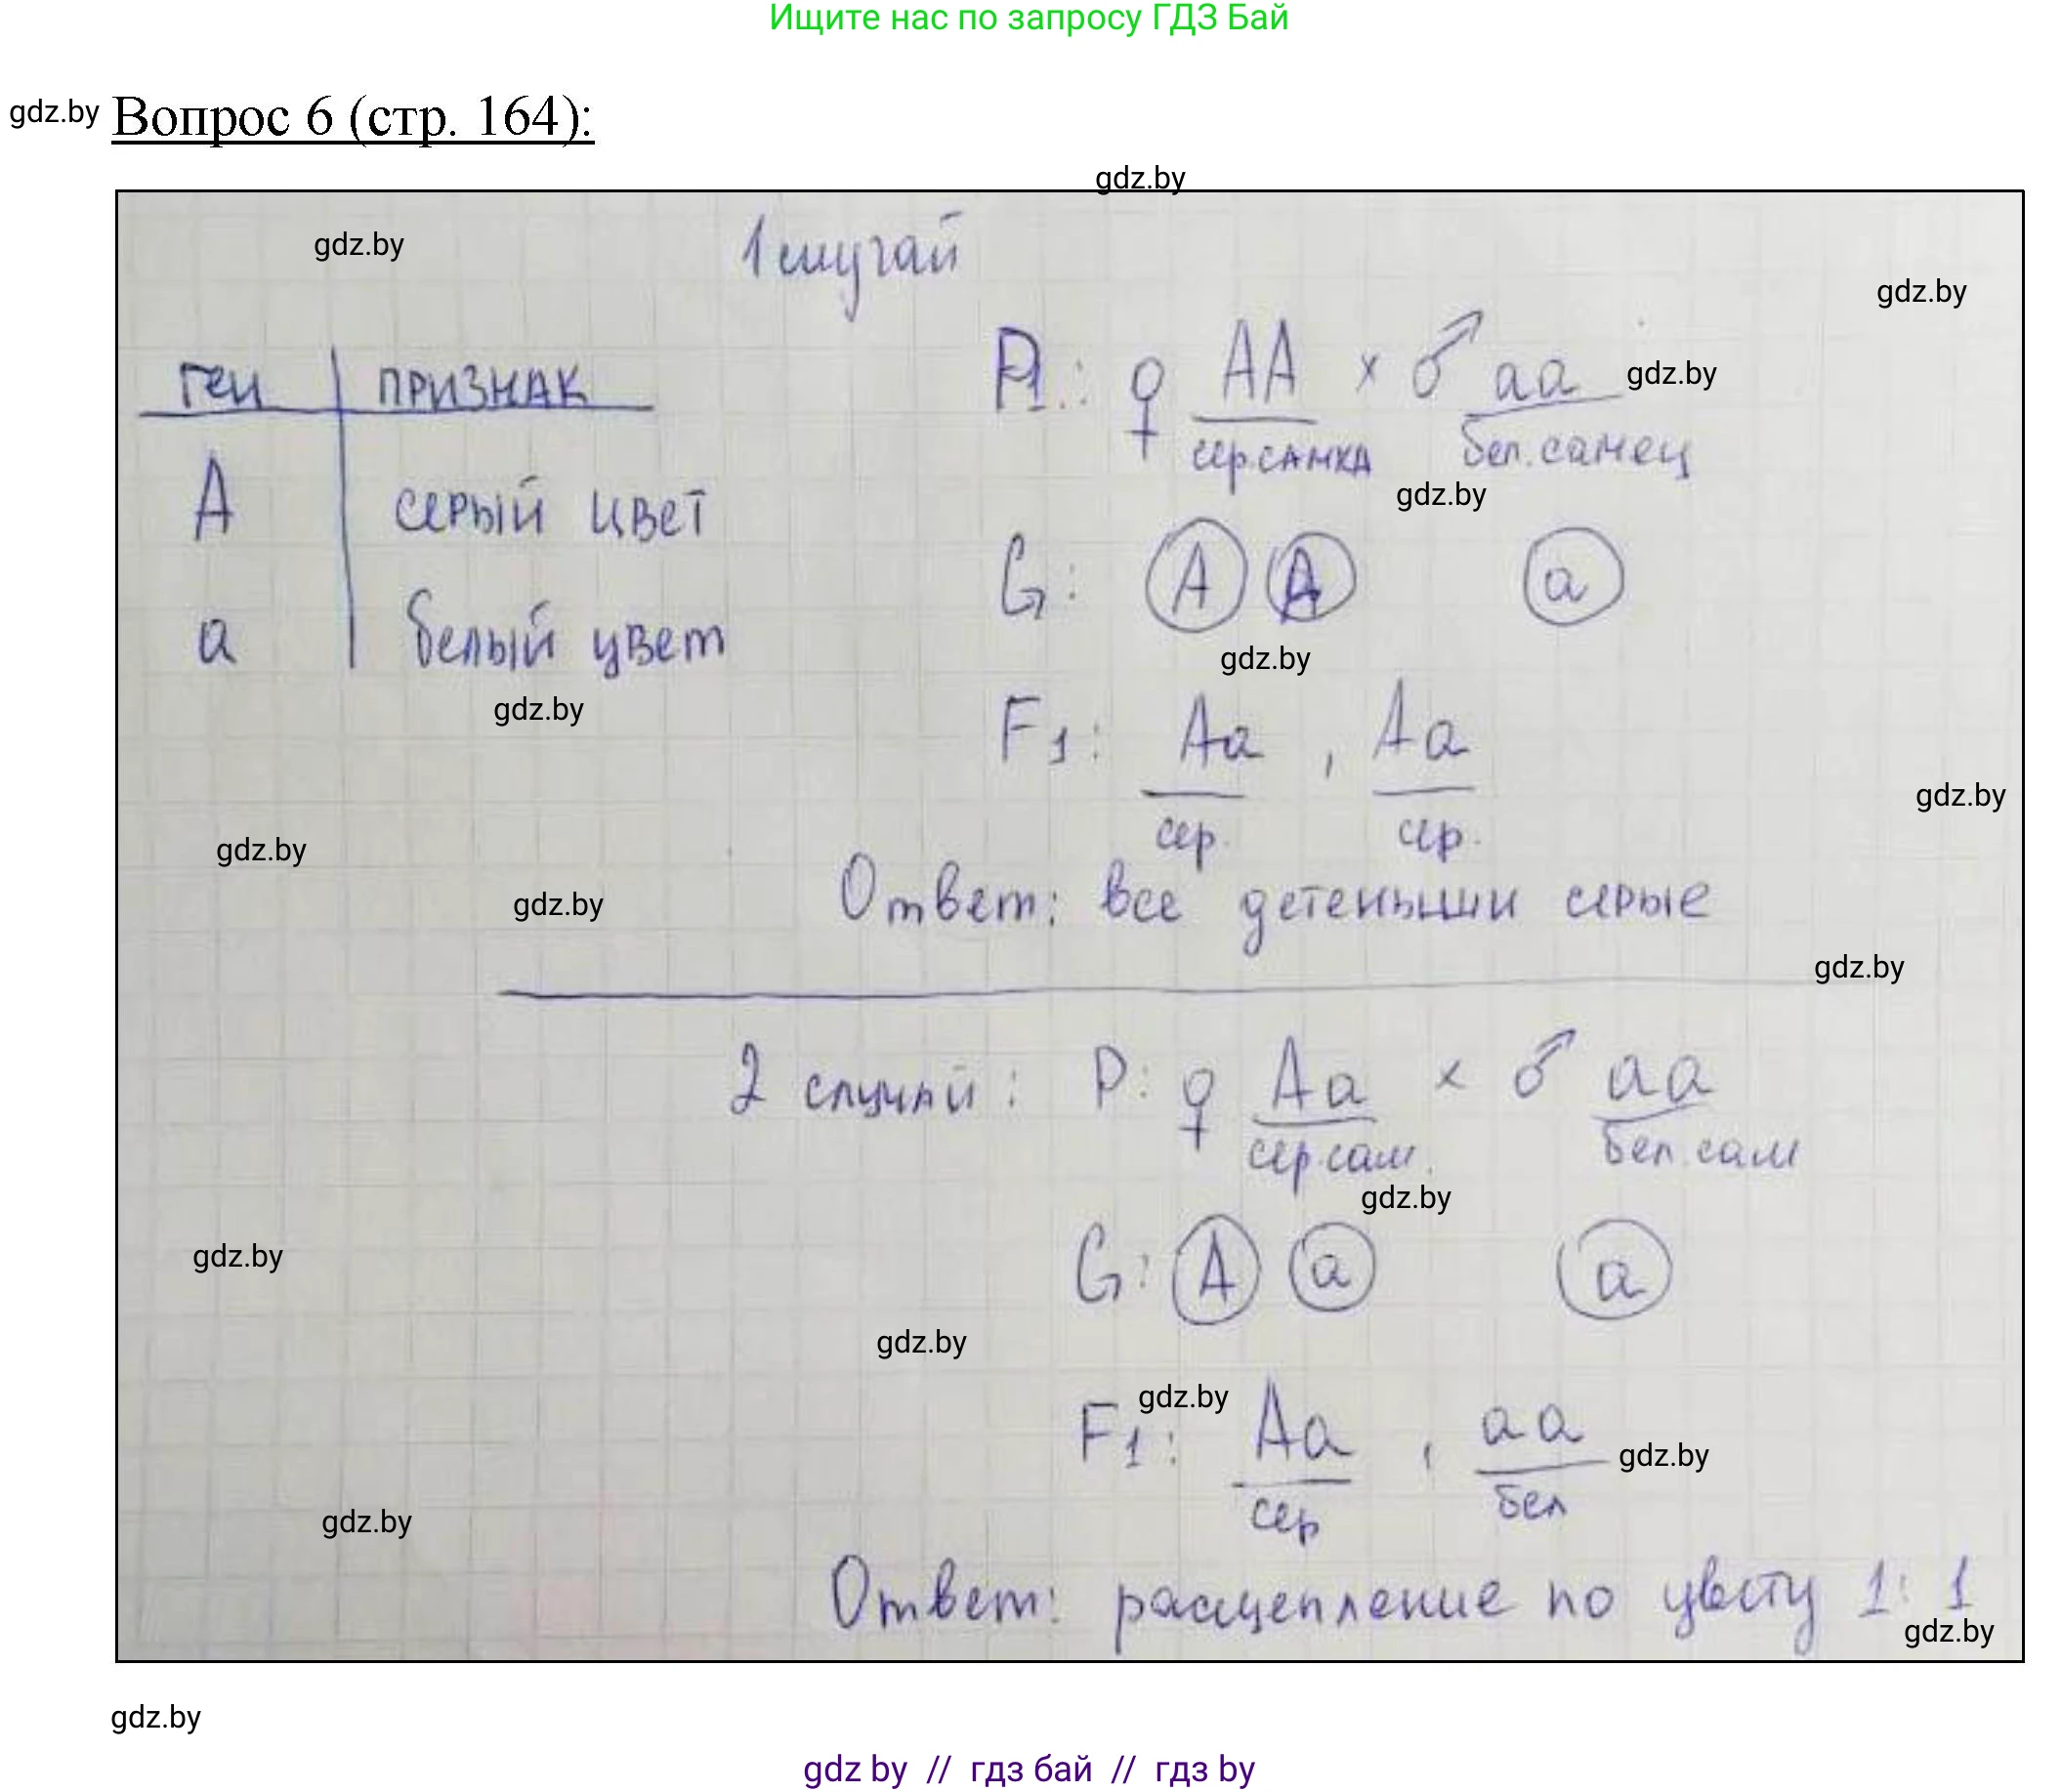 Ищите нас по запросу ГДЗ Бай
gdz.by Вопрос 6 (стр. 164):
gdz.by
gdz.by 1 случай
gdz.by
ген признак P1: ♀ AA × ♂ aa gdz.by
сер.самка бел. самец
A серый цвет gdz.by
G: A A a
a белый цвет gdz.by
gdz.by F1: Aa , Aa
gdz.by
gdz.by сер. сер.
gdz.by Ответ: все детеныши серые
gdz.by
2 случай: P: ♀ Aa × ♂ aa
сер.сам. бел.сам
gdz.by
gdz.by G: A a a
gdz.by
gdz.by
F1: Aa , aa gdz.by
gdz.by сер бел
Ответ: расщепление по цвету 1:1
gdz.by
gdz.by
gdz by // гдз бай // гдз by